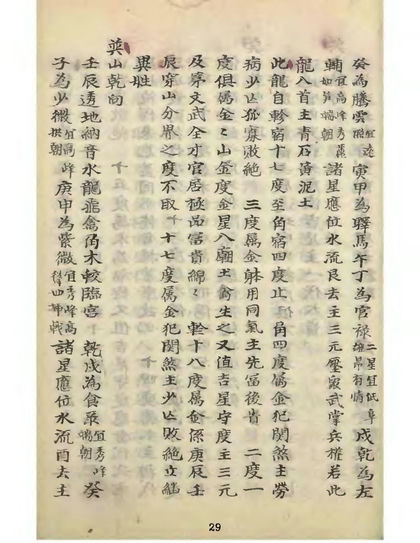 癸為騰雲 宜遠 寅甲為驛馬午丁為官祿 二星宜低阜 戌乾為左
輔 宜高峰秀麗 如笋端朝 諸星應位水流艮去主三元壓衰武掌兵權若此
龍入首主青石黃泥土
此龍自軫宿十七度至角宿四度止但角四度屬金犯関煞主勞
病少亡孤寡滅絶 三度屬金躰用同氣主先富後貴 二度一
度俱屬金之山金度金星入廟土翁生之又值吉星守度主三元
及第文武全才官居極品富貴綿之 軫十八度屬金係庚辰壬
辰穿山分界之度不取 十七度屬金犯関煞主少亡敗絶立繼
異姓
巽山乾向
壬辰透地納音水龍飛禽角木蛟臨宮 乾戌為食祿 宜秀峰端朝 癸
子為少微 宜高峰拱朝 庚申為紫微 宜秀峰高 諸星應位水流酉去主
29